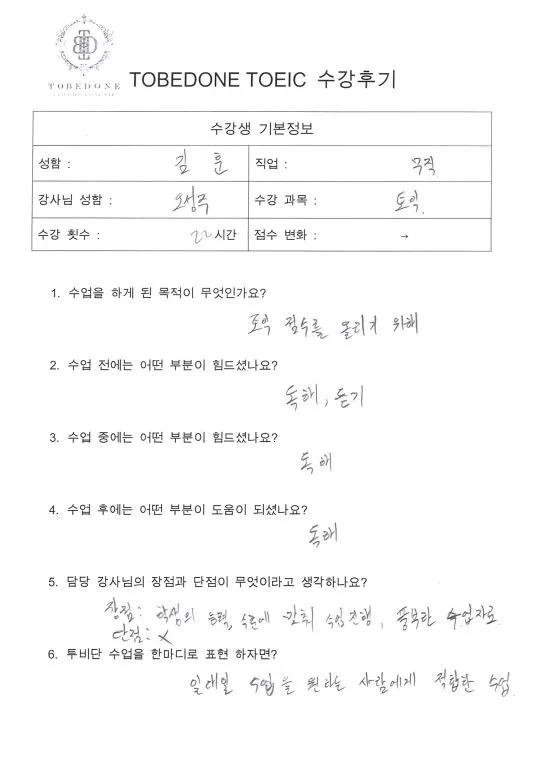 TOBEDONE
TOBEDONE TOEIC 수강후기
수강생 기본정보
성함 : 김 훈 직업 : 무직
강사님 성함 : 오성주 수강 과목 : 토익.
수강 횟수 : 22시간 점수 변화 : →
1. 수업을 하게 된 목적이 무엇인가요?
토익 점수를 올리기 위해
2. 수업 전에는 어떤 부분이 힘드셨나요?
독해, 듣기
3. 수업 중에는 어떤 부분이 힘드셨나요?
독해
4. 수업 후에는 어떤 부분이 도움이 되셨나요?
독해
5. 담당 강사님의 장점과 단점이 무엇이라고 생각하나요?
장점: 학생의 능력, 수준에 맞춰 수업진행, 풍부한 수업자료
단점: X
6. 투비단 수업을 한마디로 표현 하자면?
일대일 수업을 원하는 사람에게 적합한 수업.